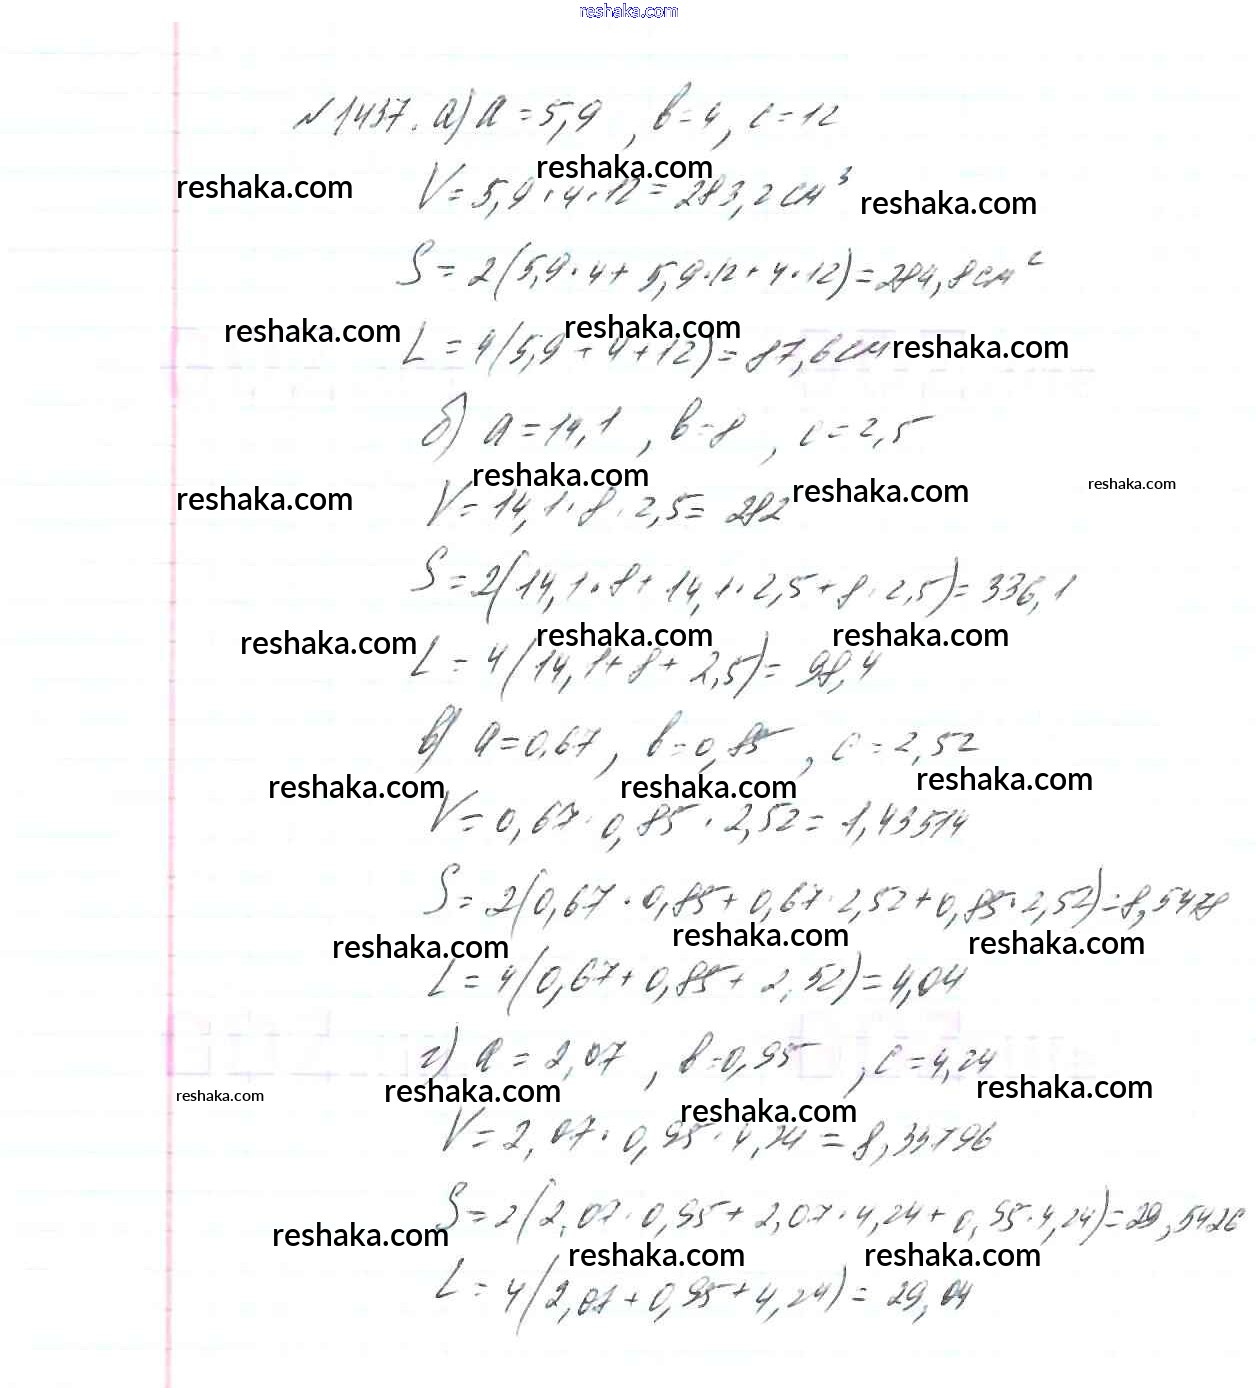 reshaka.com
№1437. а) a = 5,9 , b = 4, c = 12
reshaka.com reshaka.com reshaka.com
V = 5,9 · 4 · 12 = 283,2 см³
S = 2(5,9 · 4 + 5,9 · 12 + 4 · 12) = 284,8 см²
reshaka.com reshaka.com reshaka.com
L = 4(5,9 + 4 + 12) = 87,6 см
б) a = 14,1 , b = 8 , c = 2,5
reshaka.com reshaka.com reshaka.com reshaka.com
V = 14,1 · 8 · 2,5 = 282
S = 2(14,1 · 8 + 14,1 · 2,5 + 8 · 2,5) = 336,1
reshaka.com reshaka.com reshaka.com
L = 4(14,1 + 8 + 2,5) = 98,4
в) a = 0,67 , b = 0,85 , c = 2,52
reshaka.com reshaka.com reshaka.com
V = 0,67 · 0,85 · 2,52 = 1,43514
S = 2(0,67 · 0,85 + 0,67 · 2,52 + 0,85 · 2,52) = 8,5478
reshaka.com reshaka.com reshaka.com
L = 4(0,67 + 0,85 + 2,52) = 4,04
г) a = 2,07 , b = 0,95 , c = 4,24
reshaka.com reshaka.com reshaka.com reshaka.com
V = 2,07 · 0,95 · 4,24 = 8,33796
S = 2(2,07 · 0,95 + 2,07 · 4,24 + 0,95 · 4,24) = 29,5426
reshaka.com reshaka.com reshaka.com
L = 4(2,07 + 0,95 + 4,24) = 29,04